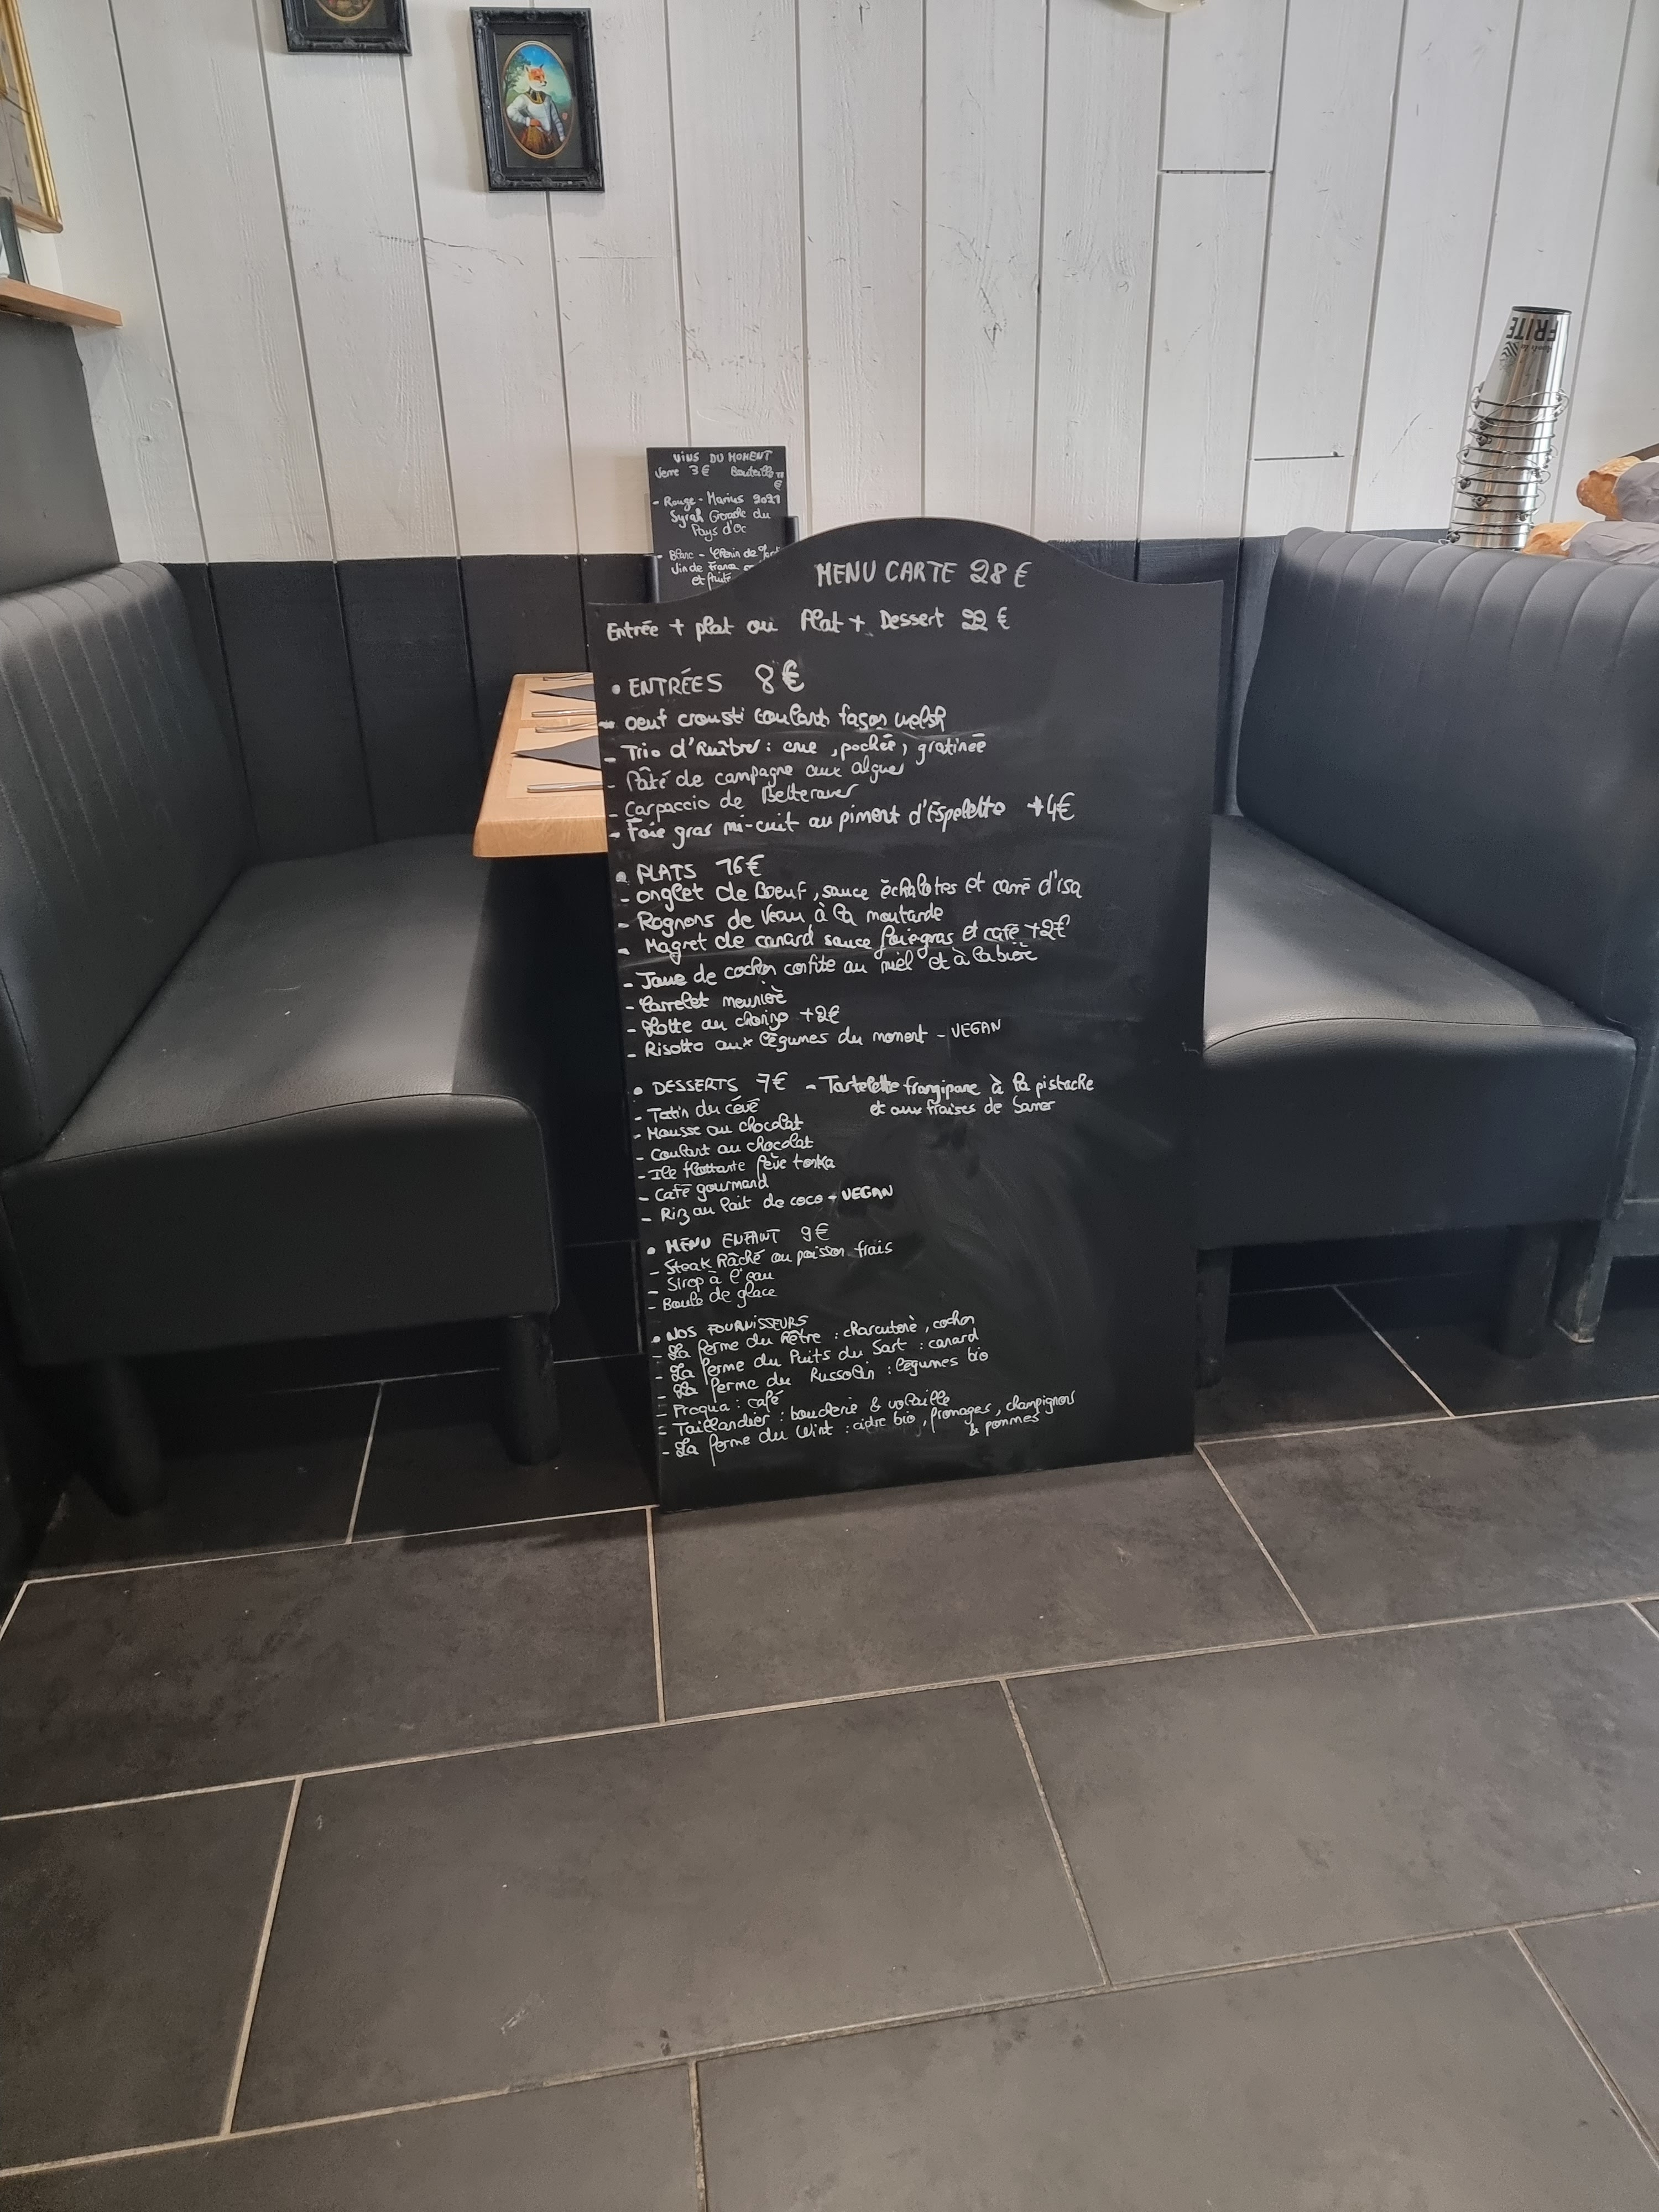 VINS DU MOMENT
Verre 3€ Bouteille
€
- Rouge - Marius 2021
Syrah Grenache du
Pays d'Oc
- Blanc - Chenin de
Vin de France
et fruité
MENU CARTE 28 €
Entrée + plat ou Plat + Dessert 22 €
• ENTRÉES 8€
- oeuf crousti coulant façon welsh
- Trio d'Huîtres : crue, pochée, gratinée
- Pâté de campagne aux algues
- Carpaccio de Betteraves
- Foie gras mi-cuit au piment d'Espelette +4€
• PLATS 16€
- onglet de Boeuf, sauce échalotes et carré d'isa
- Rognons de Veau à la moutarde
- Magret de canard sauce foie gras et café +2€
- Joue de cochon confite au miel et à la bière
- Carrelet meunière
- Lotte au chorizo +2€
- Risotto aux légumes du moment - VEGAN
• DESSERTS 7€ - Tartelette frangipane à la pistache
et aux fraises de Samer
- Tatin du
- Mousse au chocolat
- Coulant au chocolat
- Ile flottante fève tonka
- Café gourmand
- Riz au lait de coco - VEGAN
• MENU ENFANT 9€
- Steak Hâché ou poisson frais
- Sirop à l'eau
- Boule de glace
• NOS FOURNISSEURS
- La ferme du Hêtre : charcuterie, cochon
- La ferme du Puits du Sart : canard
- La ferme du : légumes bio
- Proqua : café
- Taillandier : boucherie & volaille
- La ferme du Wint : cidre bio, fromages, champignons
& pommes
FRITE